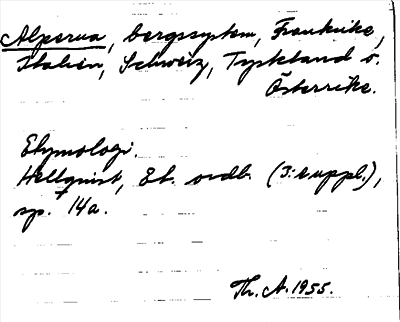 Alperna, bergssystem, Frankrike,
Italien, Schweiz, Tyskland o.
Österrike.
Etymologi.
Hellquist, Et. ordb. (3:e uppl.),
sp. 14a.
Th. A. 1955.